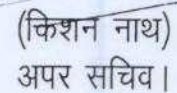 (किशन नाथ)
अपर सचिव।